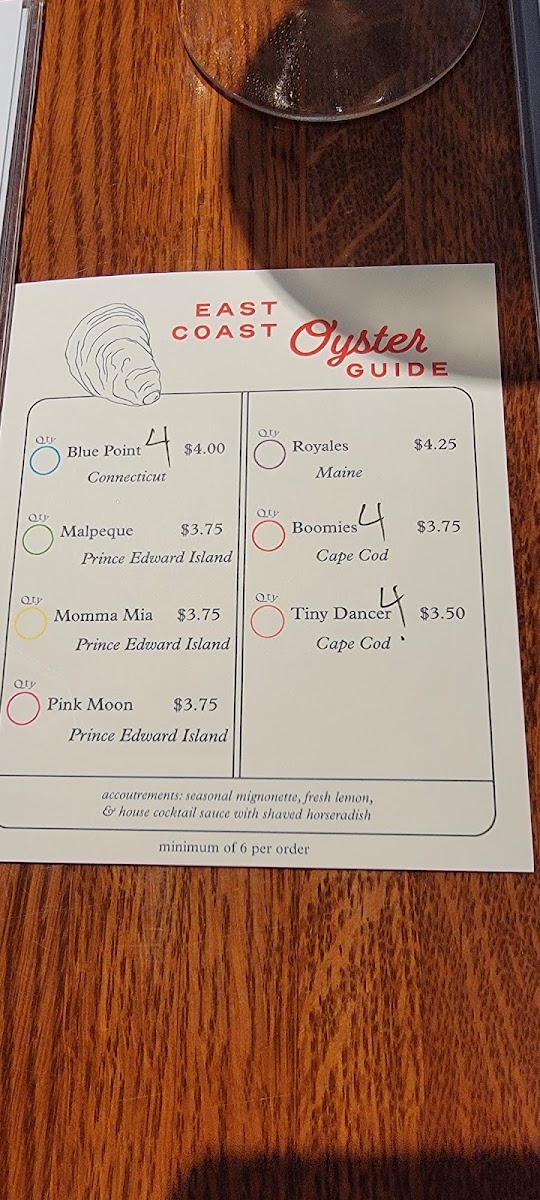 EAST
COAST Oyster
GUIDE
Qty
Blue Point 4 $4.00
Connecticut
Qty
Malpeque $3.75
Prince Edward Island
Qty
Momma Mia $3.75
Prince Edward Island
Qty
Pink Moon $3.75
Prince Edward Island
Qty
Royales $4.25
Maine
Qty
Boomies 4 $3.75
Cape Cod
Qty
Tiny Dancer 4 $3.50
Cape Cod
accoutrements: seasonal mignonette, fresh lemon,
& house cocktail sauce with shaved horseradish
minimum of 6 per order